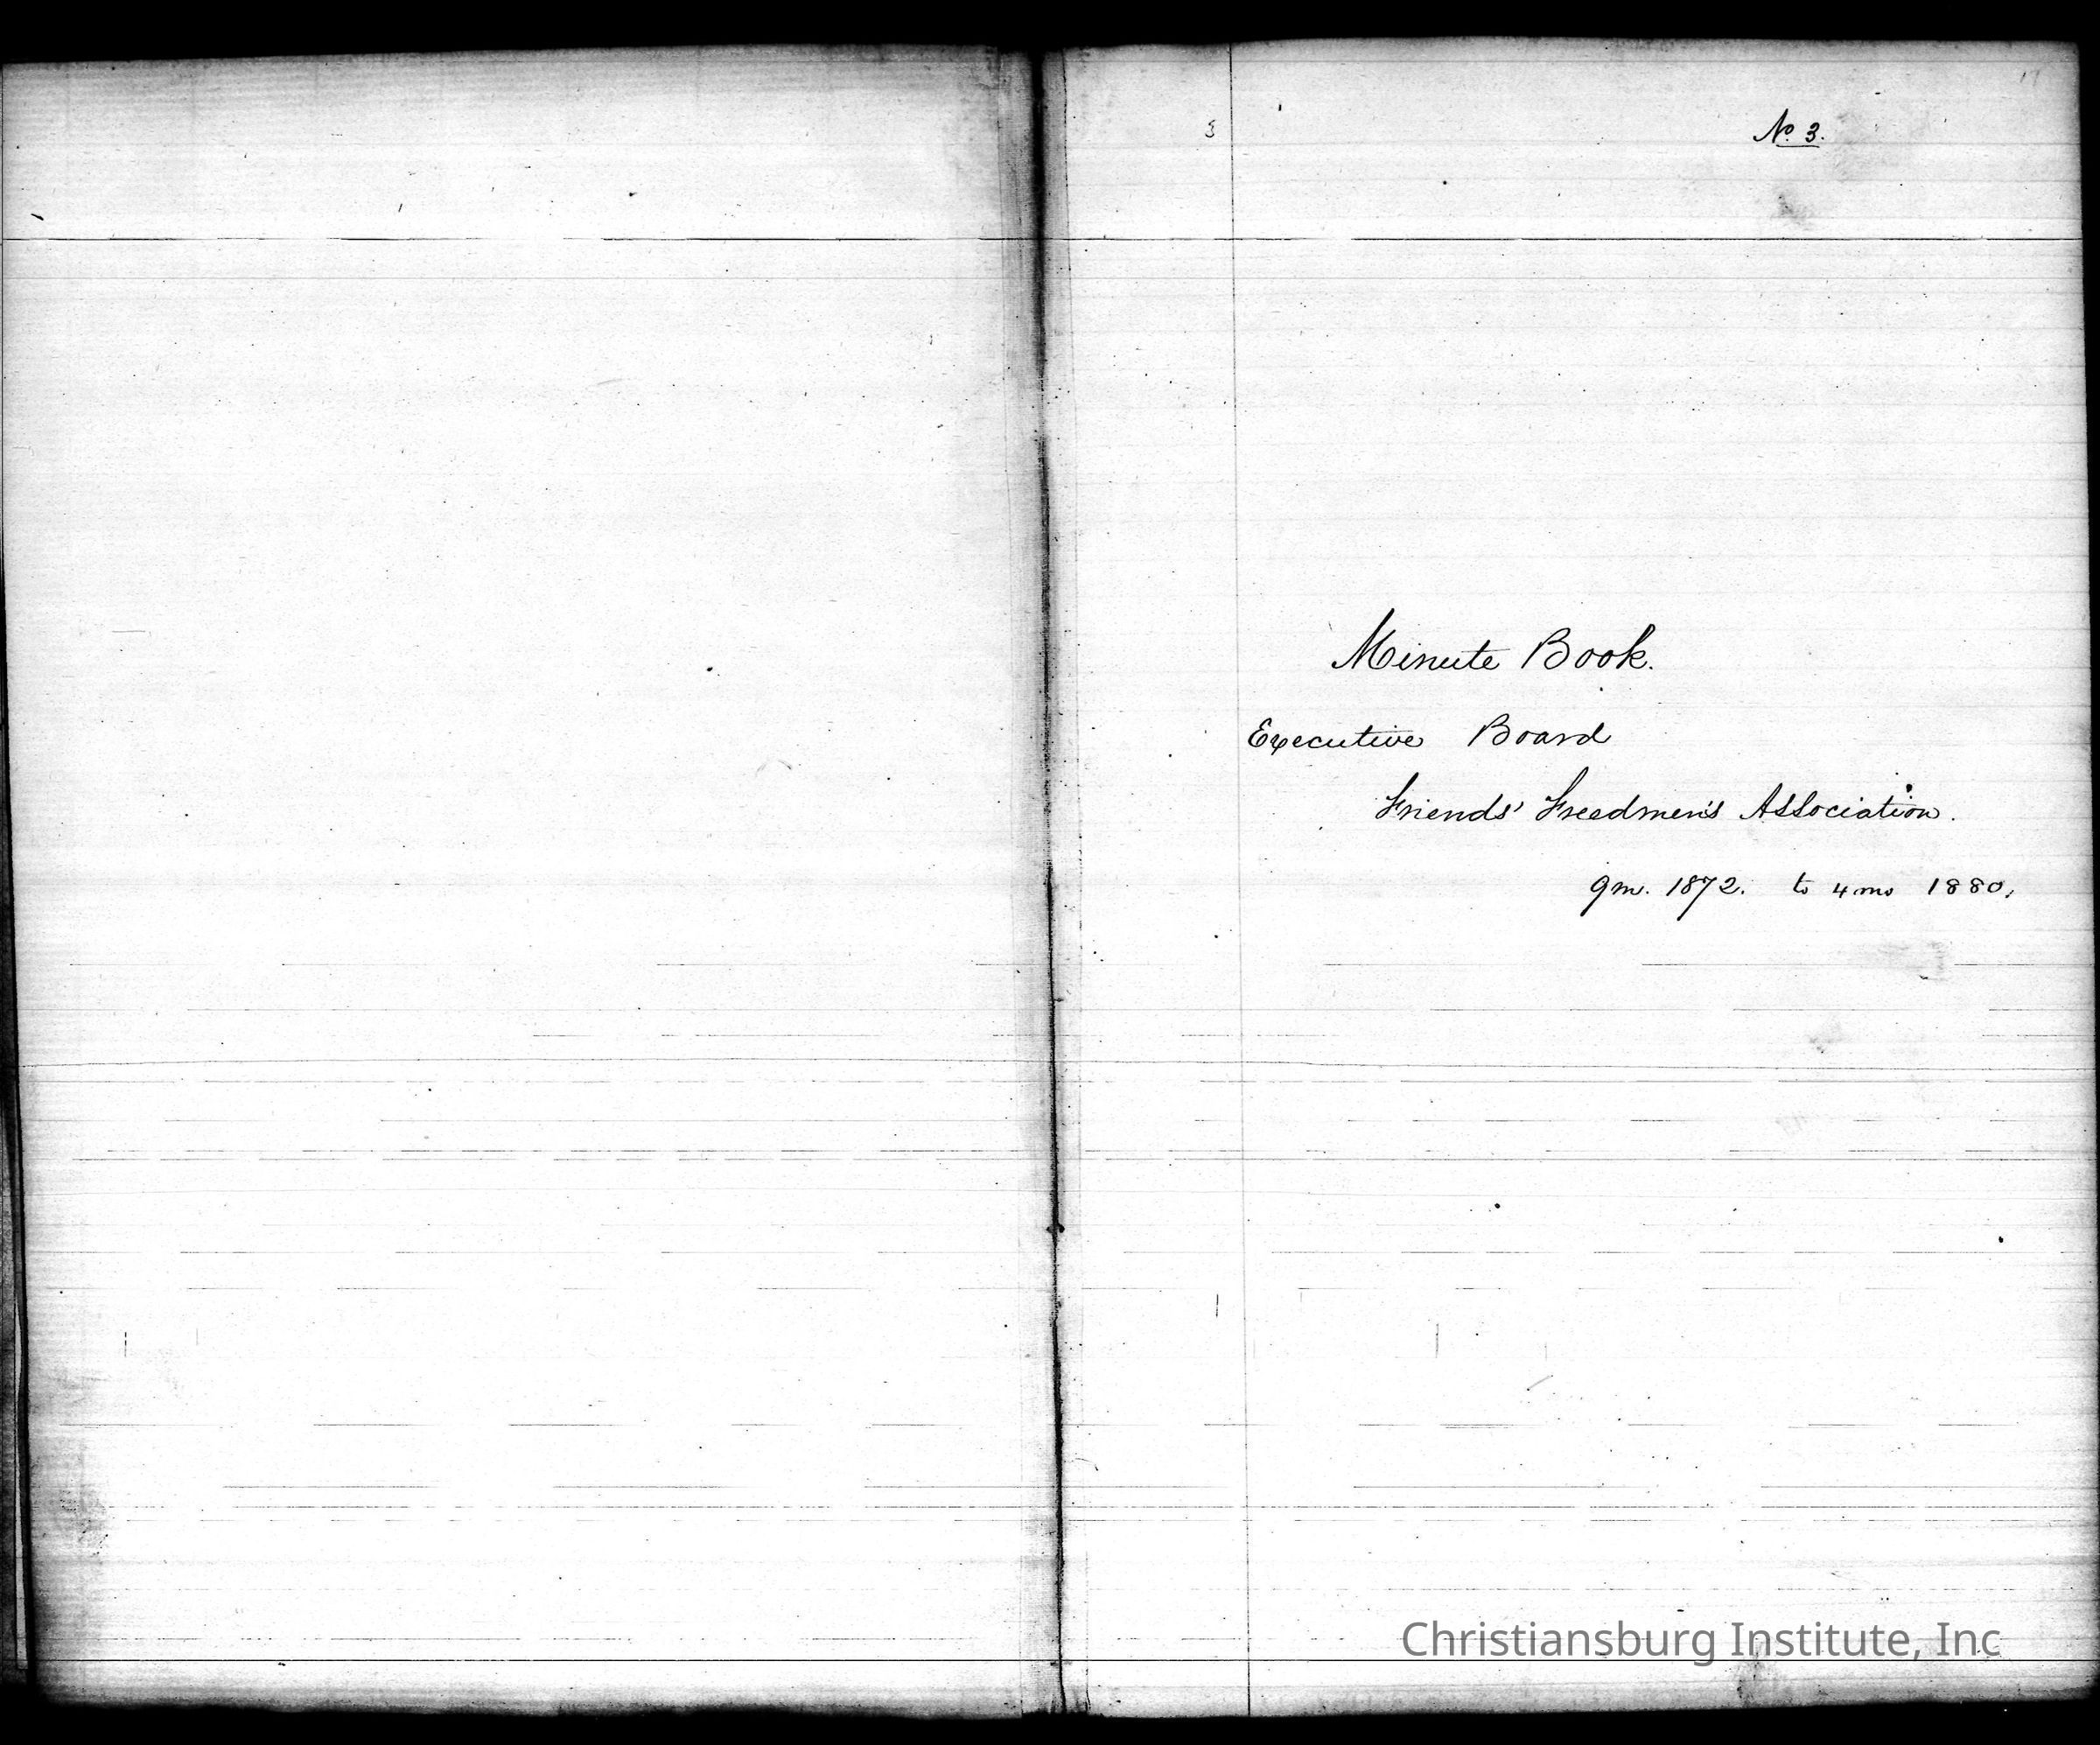 No. 3.
Minute Book.
Executive Board
Friends' Freedmen's Association.
9m. 1872. to 4 mo 1880,
Christiansburg Institute, Inc